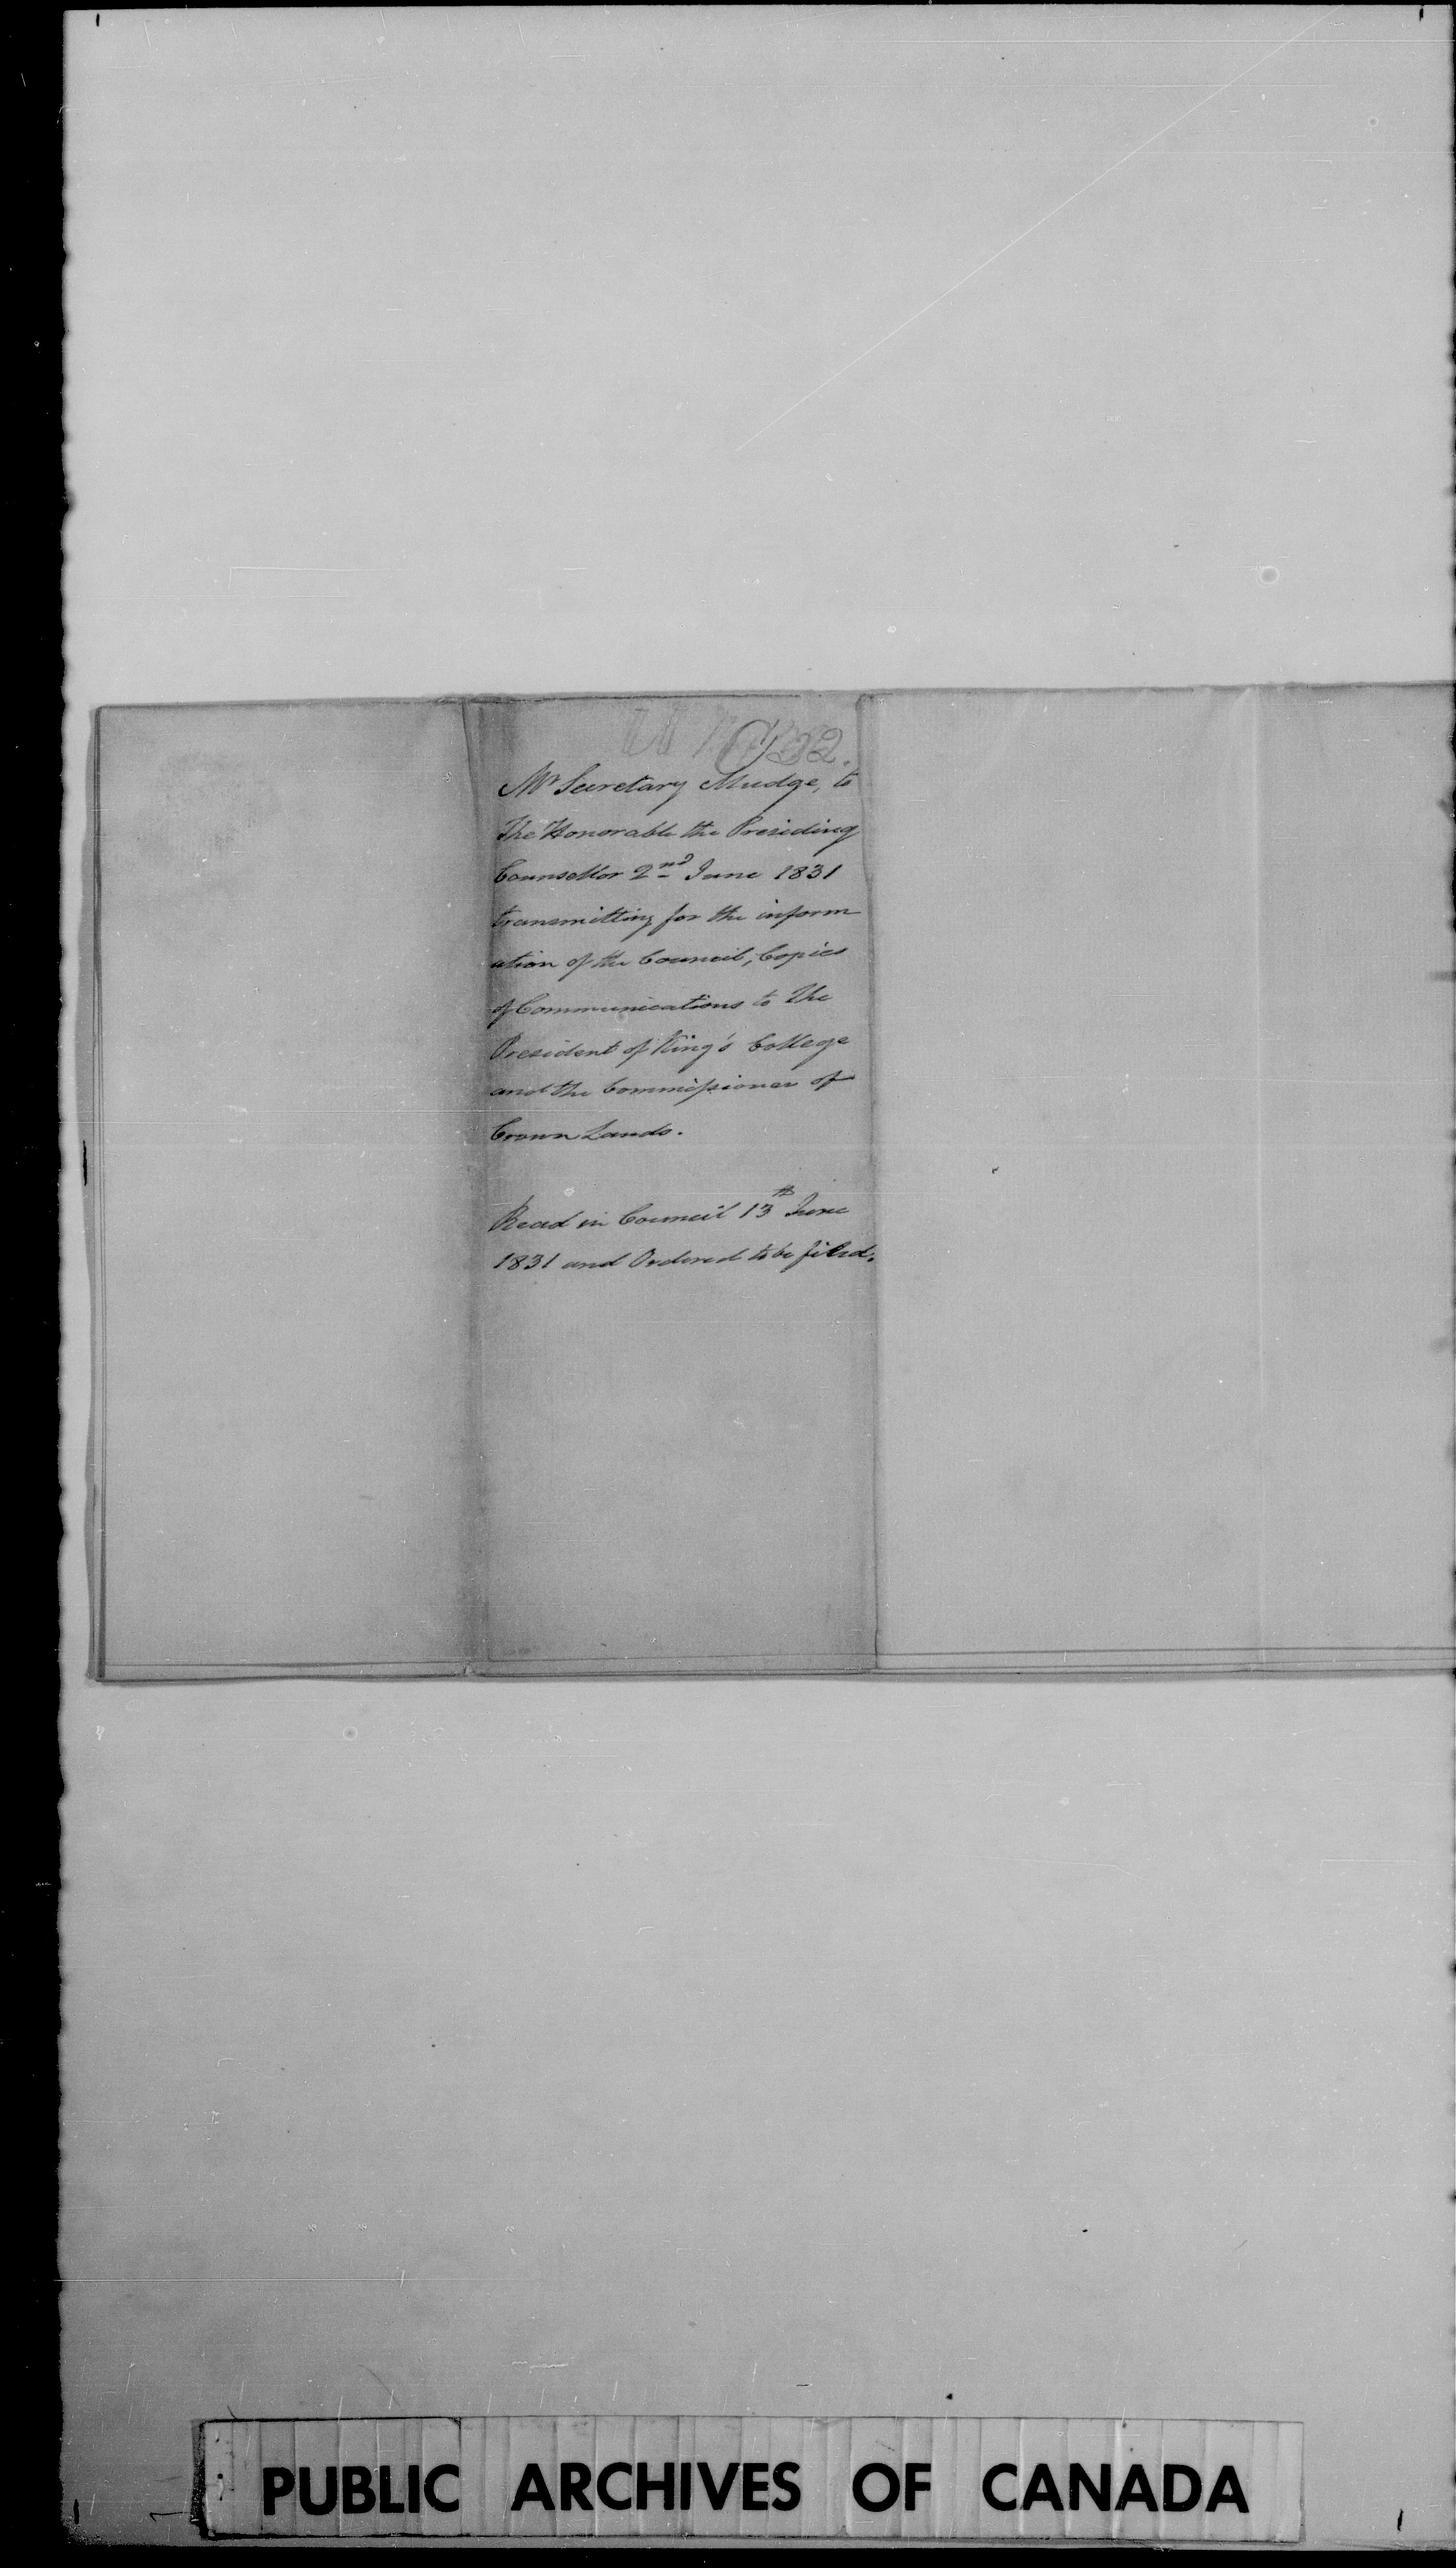 C 22.
Mr Secretary Mudge, to
The Honorable the Presiding
Counsellor 2nd June 1831
transmitting for the inform
ation of the Council, Copies
of Communications to The
President of King's College
and the Commissioner of
Crown Lands.
Read in Council 13th June
1831 and Ordered to be filed.
PUBLIC ARCHIVES OF CANADA